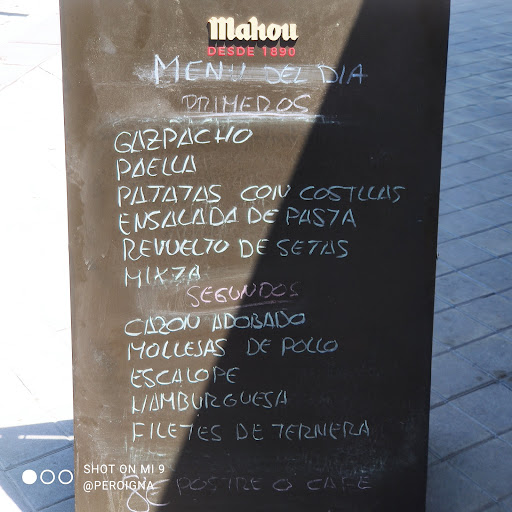 Mahou
DESDE 1890
MENU DEL DIA
PRIMEROS
GAZPACHO
PAELLA
PATATAS CON COSTILLAS
ENSALADA DE PASTA
REVUELTO DE SETAS
MIXTA
SEGUNDOS
CAZON ADOBADO
MOLLEJAS DE POLLO
ESCALOPE
HAMBURGUESA
FILETES DE TERNERA
POSTRE O CAFE
SHOT ON MI 9
@PEROIGNA